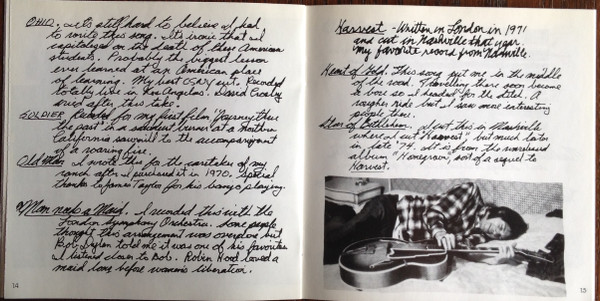 OHIO. It's still hard to believe I had
to write this song. It's ironic that I
capitalized on the death of these American
students. Probably the biggest lesson
ever learned at an American place
of learning. My best CSNY cut. Recorded
totally live in Los Angeles. David Crosby
cried after this take.
SOLDIER Recorded for my first film "Journey thru
the past" in a sawdust burner at a northern
California sawmill to the accompaniment
of a roaring fire.
Old Man I wrote this for the caretaker of my
ranch after I purchased it in 1970. Special
thanks to James Taylor for his banjo playing.
A Man needs a Maid. I recorded this with the
London Symphony Orchestra. Some people
thought this arrangement was overdone but
Bob Dylan told me it was one of his favorites.
I listened closer to Bob. Robin Hood loved a
maid long before women's liberation.
14
Harvest - Written in London in 1971
and cut in Nashville that year
my favorite record from Nashville.
Heart of Gold. This song put me in the middle
of the road. Travelling there soon became
a bore so I headed for the ditch. A
rougher ride but I saw more interesting
people there.
Star of Bethlehem. I cut this in Nashville
where I cut "Harvest", but much later
in late '74. It is from the unreleased
album "Homegrown", sort of a sequel to
Harvest.
15